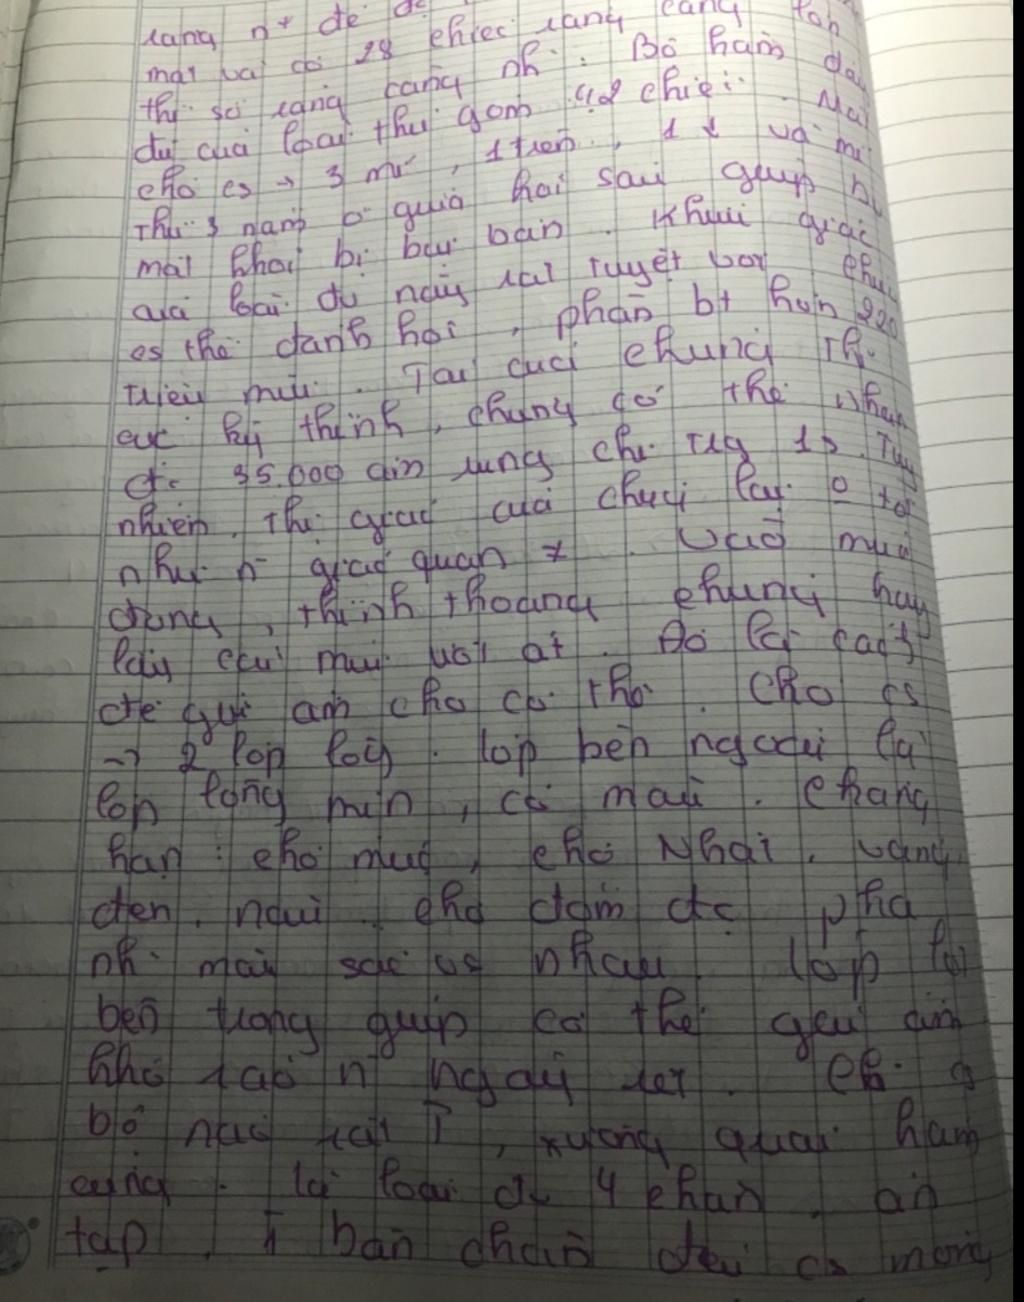 răng n+ để
mặt và có 28 chiếc răng càng lớn
thì số răng càng nh. Bộ hàm đầy
đủ của loài thú gồm 42 chiếc. Mắt
chó cs → 3 mí, 1 trên, 1 và mí
thứ 3 nằm ở giữa hơi sâu giúp
mắt khỏi bị bụi bẩn. Khứu giác
của loài đv này rất tuyệt vời chúng
cs thể đánh hơi, phân bt hơn 220
triệu mùi. Tai của chúng th.
cực kỳ thính, chúng có thể nhận
đc 35.000 âm rung chỉ trg 1s. Tuy
nhiên, thị giác của chúng lại o tốt
như n~ giác quan ≠. Vào mùa
đông, thỉnh thoảng chúng hay
lấy che mũi ướt át. Đó là cách
để giữ ấm cho cơ thể. Chó cs
→ 2 lớp lông. Lớp bên ngoài là
lớp lông mịn, có màu. Chẳng
hạn: chó mực, chó Nhật, vàng,
đen, nâu, chó đốm đc pha
nh. màu sắc vs nhau. Lớp lót
bên trong giúp cơ thể giữ ấm
khô ráo n~ ngày rét. Ch. cs
bộ não rất T, xương quai hàm
cứng. Là loài đv 4 chân, ăn
tạp, ở bàn chân đều cs móng